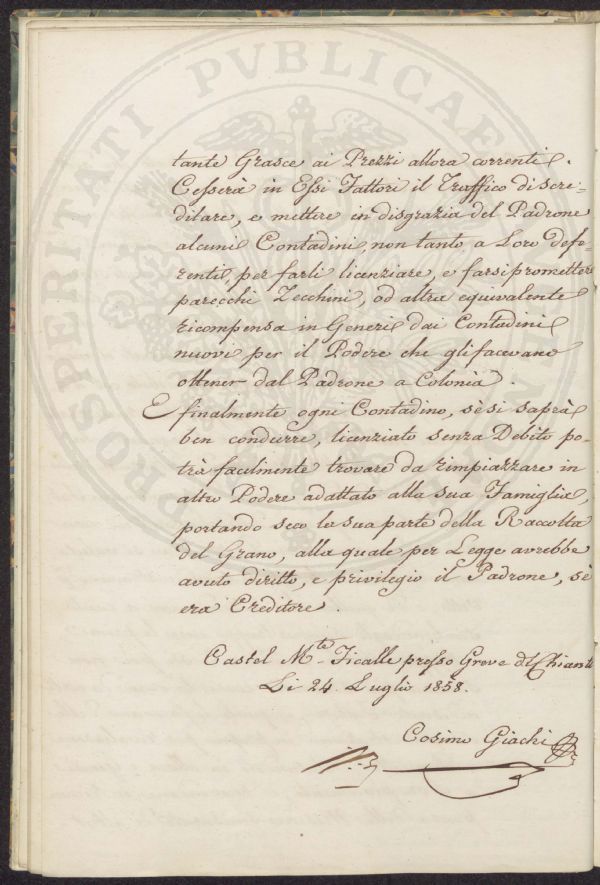 PROSPERITATI PVBLICAE
tante Grasce ai Prezzi allora correnti.
Cesserà in Essi Fattori il Traffico di scre=
ditare, e mettere in disgrazia del Padrone
alcuni Contadini, non tanto a Loro defe=
renti, per farli licenziare, e farsi promettere
parecchi Zecchini, od altra equivalente
ricompensa in Generi dai Contadini
nuovi per il Podere che gli facevano
ottener dal Padrone a Colonìa.
E finalmente ogni Contadino, se si saprà
ben condurre, licenziato senza Debito po=
trà facilmente trovare da rimpiazzare in
altro Podere adattato alla sua Famiglia,
portando seco la sua parte della Raccolta
del Grano, alla quale per Legge avrebbe
avuto diritto, e privilegio il Padrone, se
era Creditore.
Castel M.te Ficalle presso Greve di Chianti
Li 24. Luglio 1858.
Cosimo Giachi